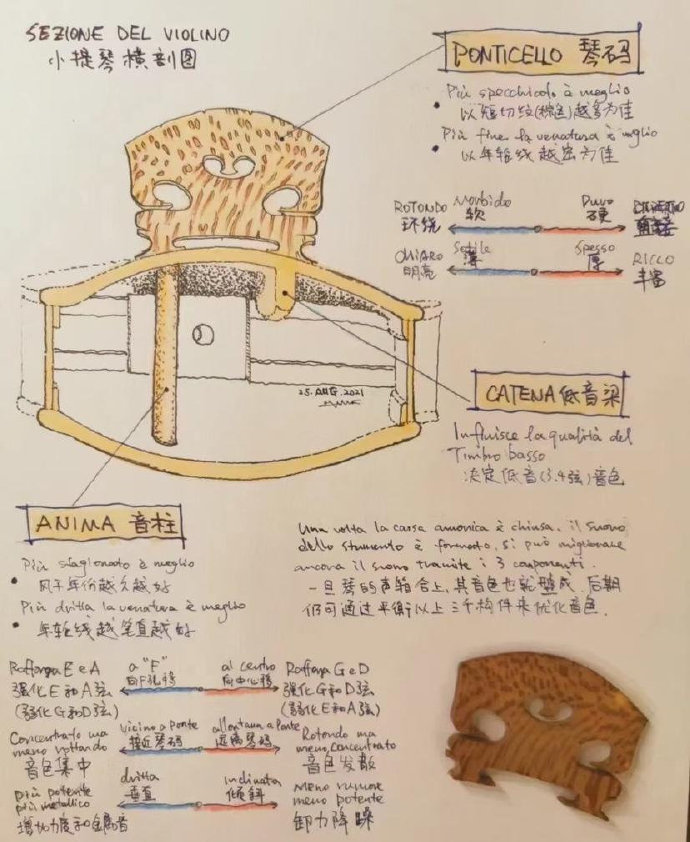 SEZIONE DEL VIOLINO
小提琴横剖图
PONTICELLO 琴码
Più specchicolo è meglio
以短切纹(棕色)越多为佳
Più fine la venatura è meglio
以年轮线越密为佳
ROTONDO Morbido Duro
环绕 软 硬
CHIARO Sottile Spesso RICCO
明亮 薄 厚 丰富
25.AUG.2021
CATENA 低音梁
Influisce la qualità del
Timbro basso
决定低音(3.4弦)音色
ANIMA 音柱
Più stagionato è meglio
风干年份越久越好
Più dritta la venatura è meglio
年轮线越笔直越好
Una volta la cassa armonica è chiusa, il suono
dello strumento è formato, si può migliorare
ancora il suono tramite i 3 componenti.
一旦琴的声箱合上,其音色也就塑成,后期
仍可通过平衡以上三个构件来优化音色.
Rafforza E e A a "F" al centro Rafforza G e D
强化E和A弦 向F孔移 向中心移 强化G和D弦
(弱化G和D弦) (弱化E和A弦)
Concentrato ma vicino a ponte allontana a ponte Rotondo ma
meno rotondo 接近琴码 远离琴码 meno concentrato
音色集中 音色发散
più potente dritta inclinata meno rumore
più metallico 垂直 倾斜 meno potente
增加力度和金属音 卸力降躁